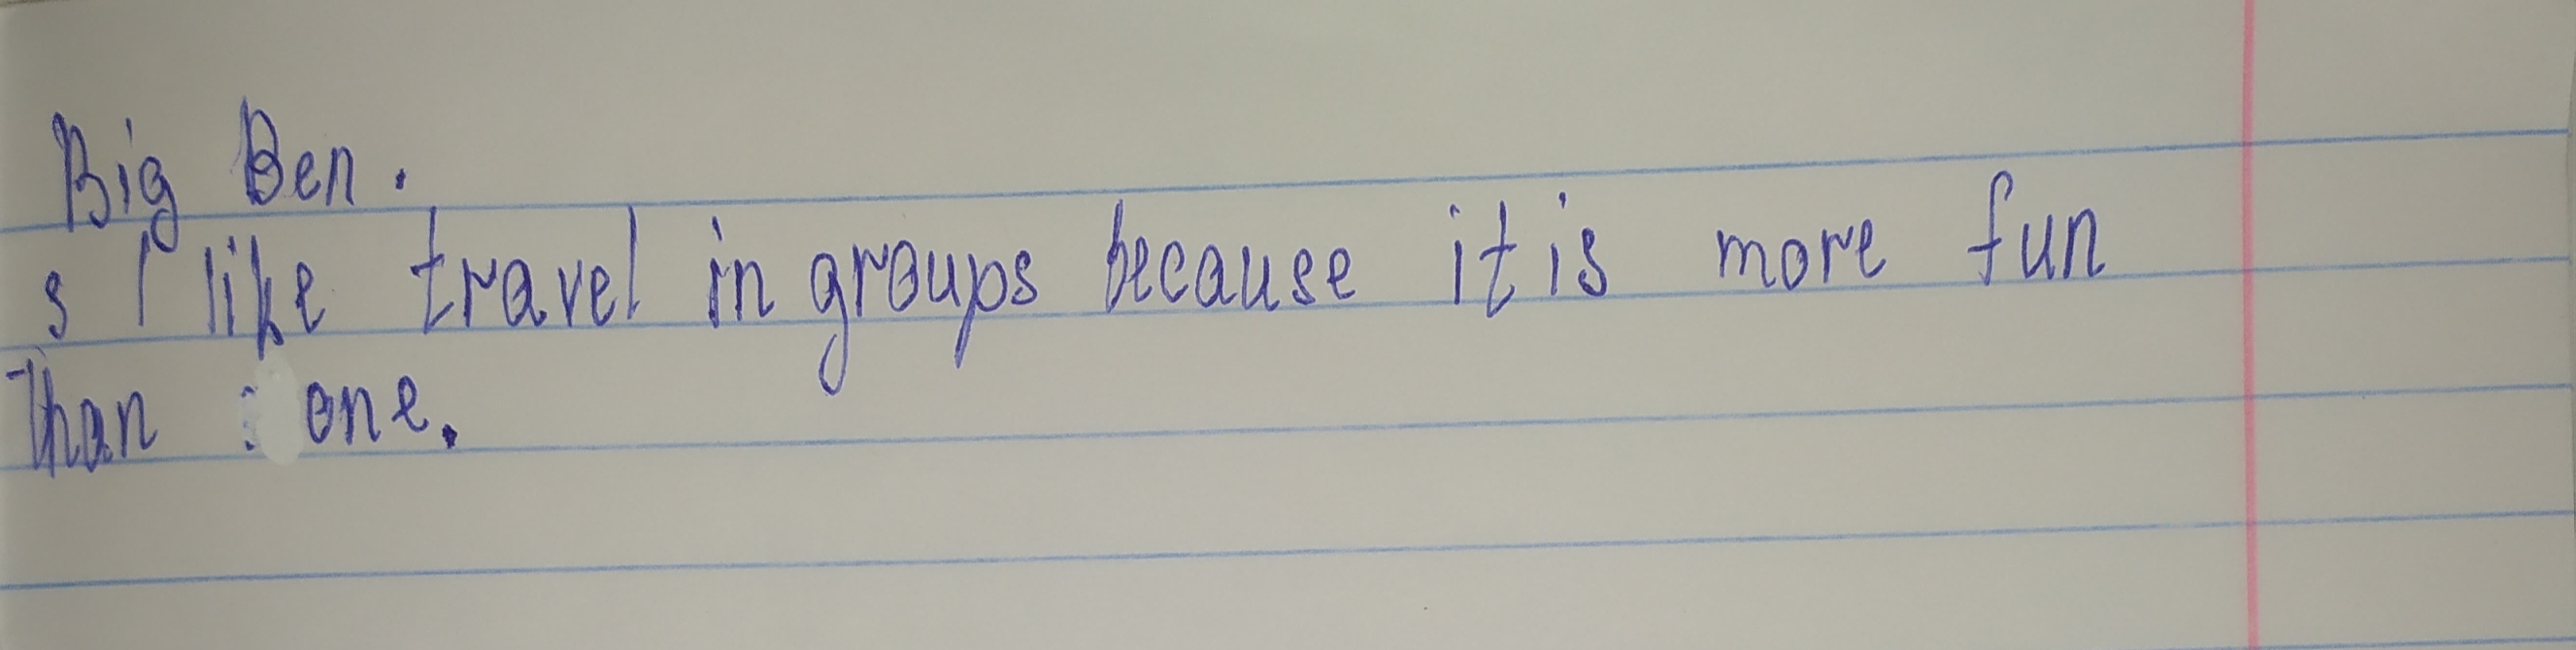 Big Ben.
5 I like travel in groups because it is more fun
Than one.